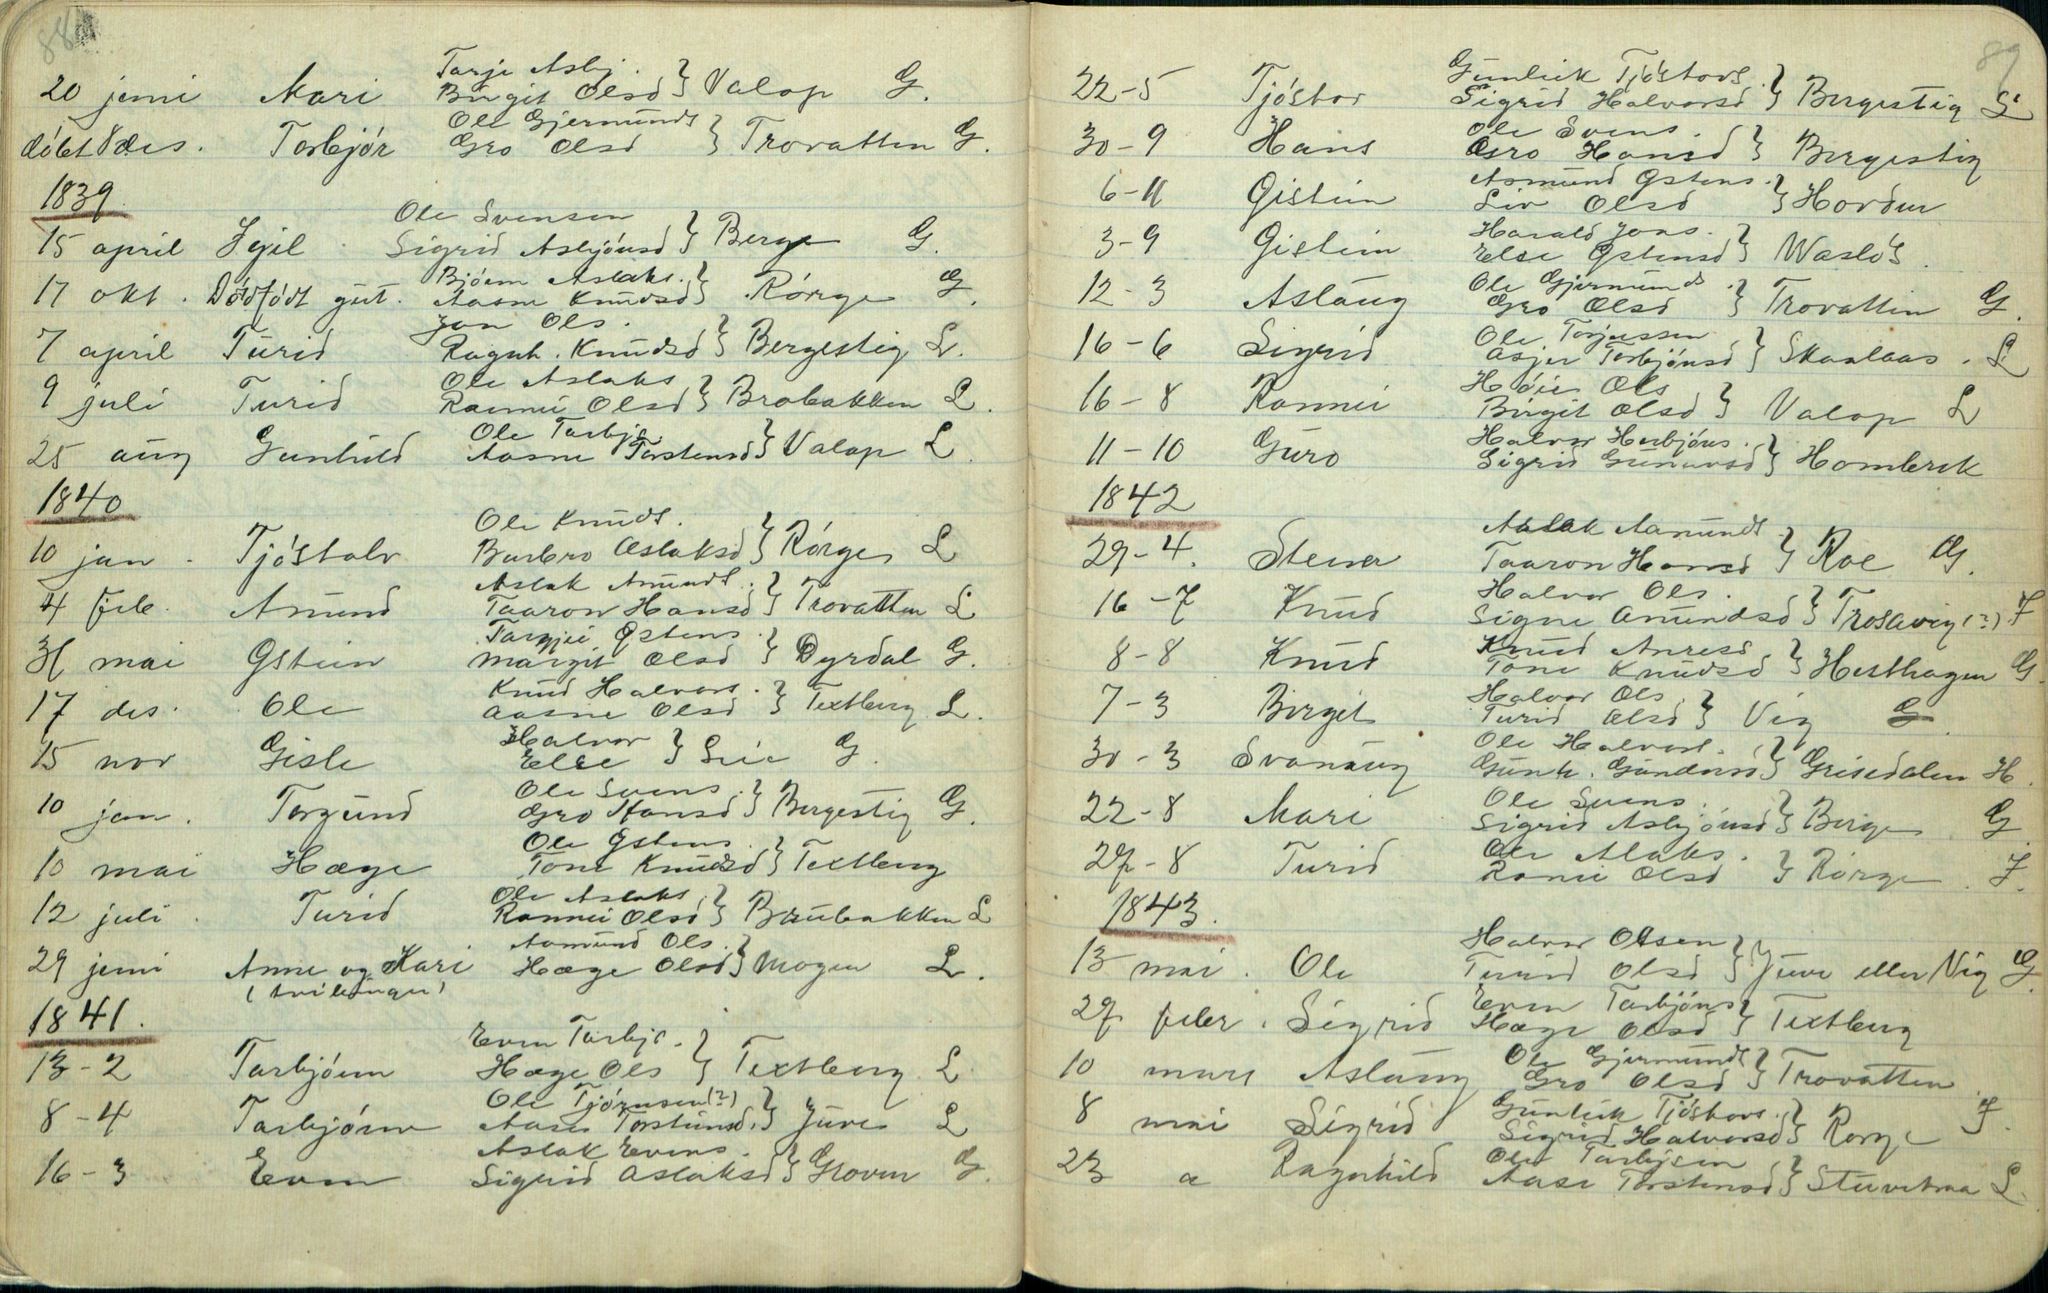 88
Tarje Asbj.
20 juni Mari Birgit Olsd } Valop G.
Ole Gjermunds
døbt 8 des. Torbjør Gro Olsd } Trovatten G.
1839
Ole Svensen
15 april Egil Sigrid Asbjønsd } Berge G.
Bjøern Aslaks.
17 okt. Dødfødt gut. Aasne Knudsd } Rørge G.
Jon Ols.
7 april Turid Ragnh. Knudsd } Bergestig L.
Ole Aslaks
9 juli Turid Rannei Olsd } Brobakken L.
Ole Tarbjø
25 aug Gunhild Aasne Torstensd } Valop L
1840
Ole Knuds.
10 jan. Tjöstolv Barbro Aslaksd } Rørge L
Aslak Amunds.
4 feb. Amund Taaron Hansd } Trovatten L
Targjei Østens.
31 mai Østein Margit Olsd } Dyrdal G.
Knud Halvors.
17 des. Ole Aasne Olsd } Textberg L.
Halvor
15 nov Gisle Else } Lie G.
Ole Svens.
10 jan. Torgund Gro Hansd } Bergestig G.
Ole Østens.
10 mai Hæge Tone Knudsd } Textberg
Ole Aslaks.
12 juli. Turid Rannei Olsd } Brubakken L
Aamund Ols.
29 juni Anne og Kari Hæge Olsd } Mogen L.
(tvilinger)
1841.
Even Tarbjø.
13-2 Tarbjöen Hæge Ols } Textberg L
Ole Tjörnsen(?)
8-4 Tarbjörn Aase Torstensd. } Juve L
Aslak Evens.
16-3 Even Sigrid Aslaksd } Groven G.
89
Gunleik Tjöstovs.
22-5 Tjöstov Sigrid Halvorsd } Bergestig L
Ole Svens.
30-9 Hans Gro Hansd } Bergestig
Asmund Østens.
6-11 Øistein Liv Olsd } Hovden
Harald Jons.
3-9 Øistein Else Østensd } Waslös.
Ole Gjermunds.
12-3 Aslaug Gro Olsd } Trovatten G.
Ole Torjussen
16-6 Sigrid Asjer Torbjönsd } Skaalaas. L
Høie Ols
16-8 Rannei Birgit Olsd } Valop L
Halvor Herbjöns.
11-10 Guro Sigrid Gunarsd } Hombrek
1842
Aslak Aamunds.
29-4. Steinar Taaron Hansd } Roe G.
Halvor Ols.
16-7 Knud Signe Amundsd } Trosavig (?). F
Knud Anresd
8-8 Knud Tone Knudsd } Hesthagen G.
Halvor Ols.
7-3 Birgit Turid Olsd } Vig G
Ole Halvors.
30-3 Svanaug Gunh. Gundersd } Grisedalen H.
Ole Svens.
22-8 Mari Sigrid Asbjönsd } Berge G
Ole Alaks.
27-8 Turid Ranei Olsd } Rörge. F.
1843.
Halvor Olsen
13 mai. Ole Turid Olsd } Juve eller Vig G.
Even Tarbjöns
27 febr. Sigrid Hæge Olsd } Textberg
Ole Gjermunds
10 mars Aslaug Gro Olsd } Trovatten
Gunleik Tjöstovs.
8 mai Sigrid Sigrid Halvorsd } Rorge F.
Ole Tarbjsen
23 a Ragnhild Aase Torstensd } L.